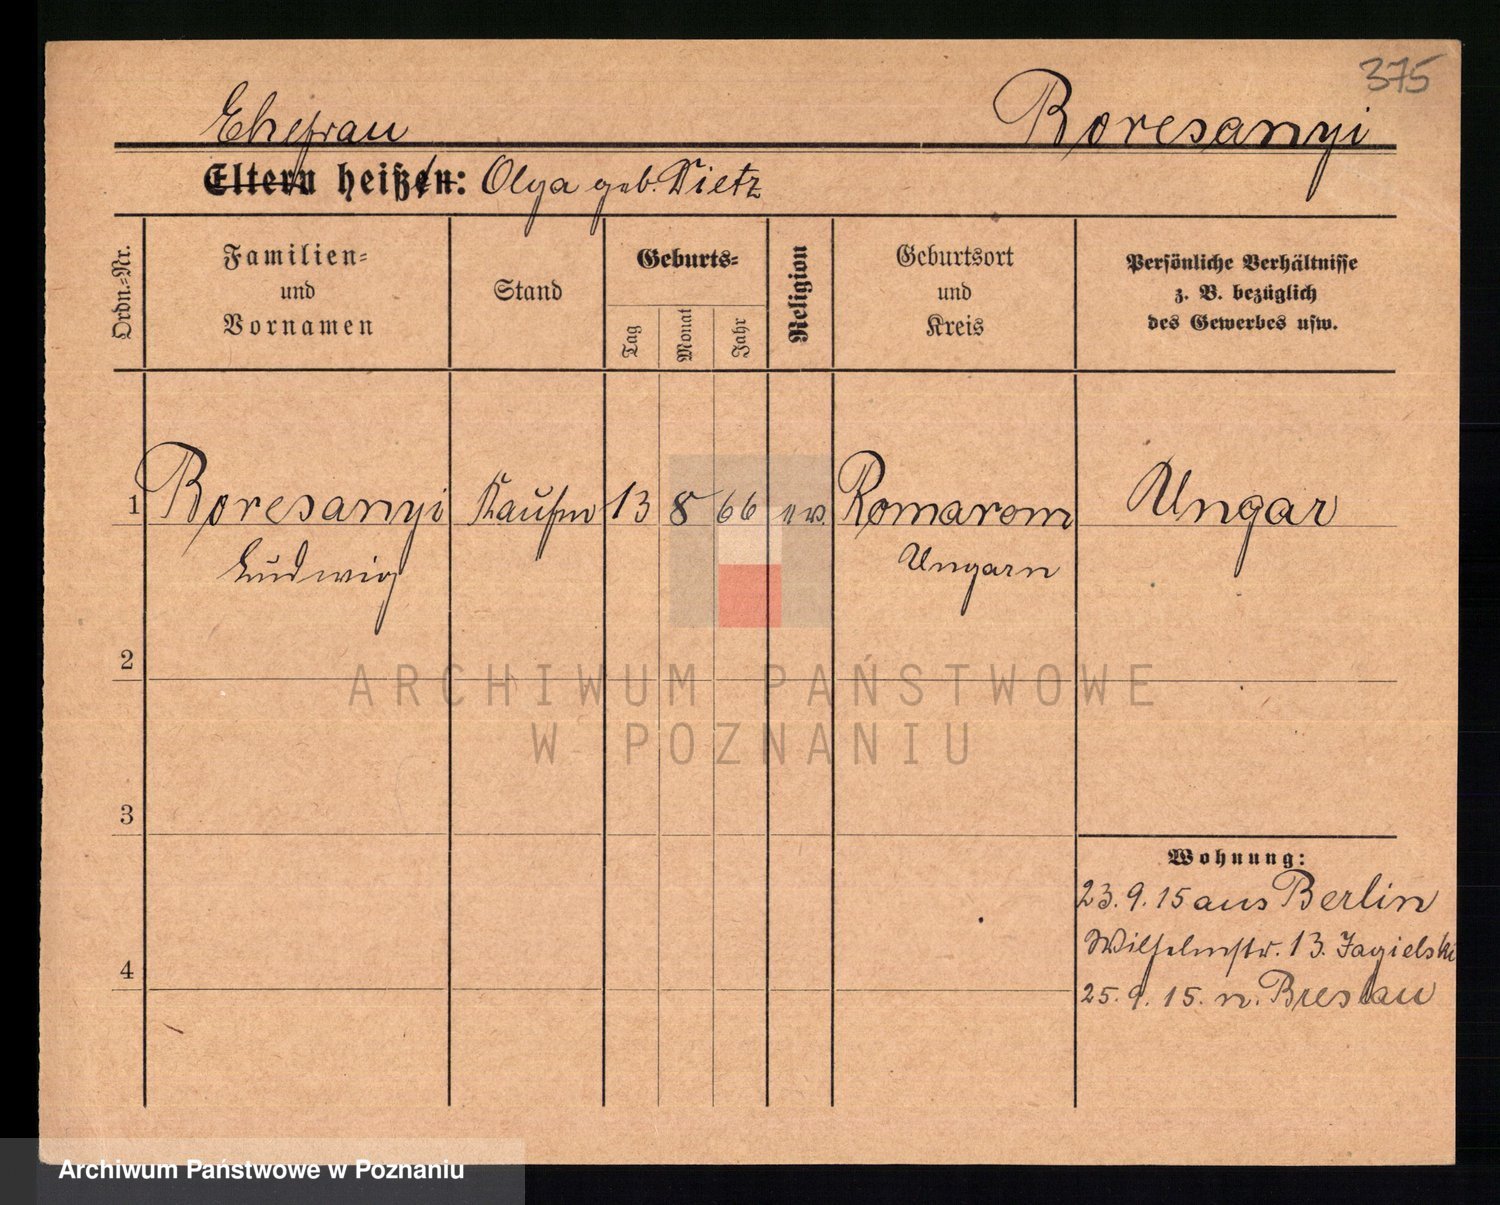 375
Ehefrau Boresanyi
Eltern heißen: Olga geb. Dietz
Ordn.-Nr.
Familien-
und
Vornamen
Stand
Geburts-
Tag
Monat
Jahr
Religion
Geburtsort
und
Kreis
Persönliche Verhältnisse
z. B. bezüglich
des Gewerbes usw.
1 Boresanyi Kaufm 13 8 66 ev. Komarom Ungar
Ludwig Ungarn
2
3
4
Wohnung:
23. 9. 15 aus Berlin
Wilhelmstr. 13. Jagielski
25. 9. 15. n. Breslau
ARCHIWUM PAŃSTWOWE
W POZNANIU
Archiwum Państwowe w Poznaniu